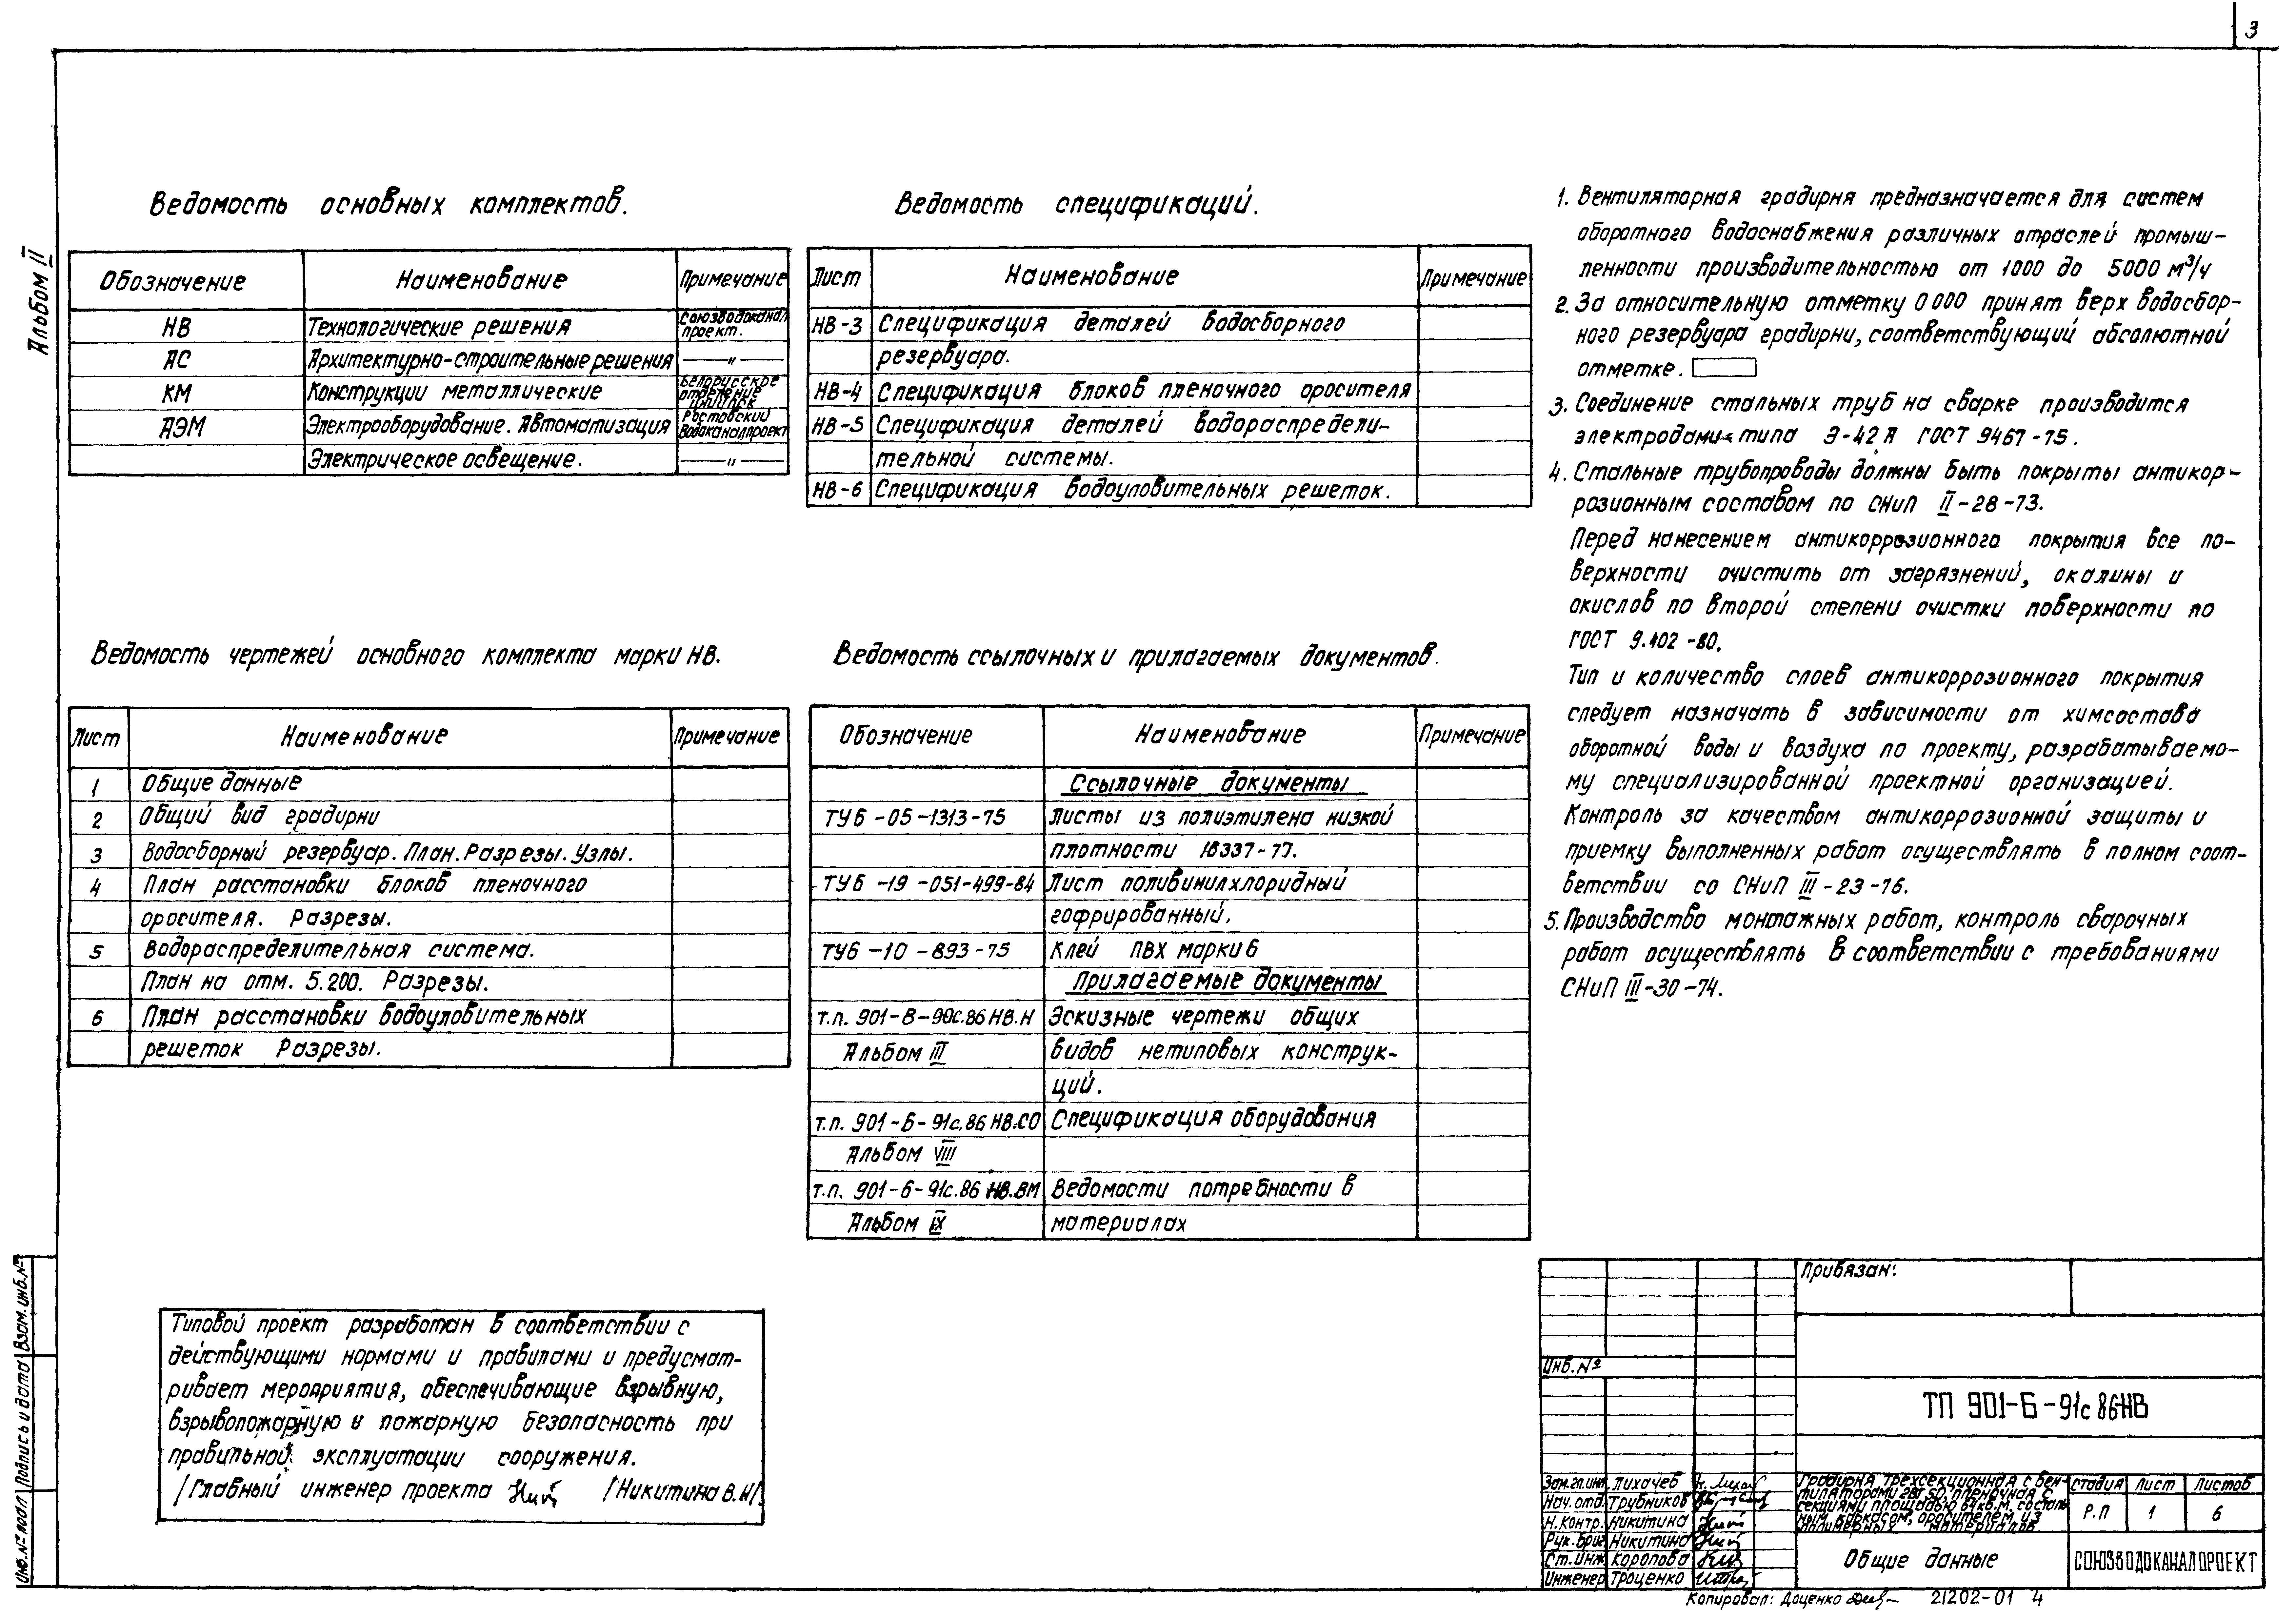 3
Альбом II
Ведомость основных комплектов.
Обозначение Наименование Примечание
НВ Технологические решения Союзводоканал
проект.
АС Архитектурно-строительные решения —〃—
КМ Конструкции металлические Белорусское
отделение
ЦНИИПСК
АЭМ Электрооборудование. Автоматизация Ростовский
Водоканалпроект
Электрическое освещение. —〃—
Ведомость чертежей основного комплекта марки НВ.
Лист Наименование Примечание
1 Общие данные
2 Общий вид градирни
3 Водосборный резервуар. План. Разрезы. Узлы.
4 План расстановки блоков пленочного
оросителя. Разрезы.
5 Водораспределительная система.
План на отм. 5.200. Разрезы.
6 План расстановки водоуловительных
решеток Разрезы.
Типовой проект разработан в соответствии с
действующими нормами и правилами и предусмат-
ривает мероприятия, обеспечивающие взрывную,
взрывопожарную и пожарную безопасность при
правильной эксплуатации сооружения.
/Главный инженер проекта /Никитина В.Н/.
Ведомость спецификаций.
Лист Наименование Примечание
НВ-3 Спецификация деталей водосборного
резервуара.
НВ-4 Спецификация блоков пленочного оросителя
НВ-5 Спецификация деталей водораспредели-
тельной системы.
НВ-6 Спецификация водоуловительных решеток.
Ведомость ссылочных и прилагаемых документов.
Обозначение Наименование Примечание
Ссылочные документы
ТУ6-05-1313-75 Листы из полиэтилена низкой
плотности 16337-77.
ТУ6-19-051-499-84 Лист поливинилхлоридный
гофрированный.
ТУ6-10-893-75 Клей ПВХ марки б
Прилагаемые документы
т.п. 901-6-90с.86 НВ.Н Эскизные чертежи общих
Альбом III видов нетиповых конструк-
ций.
т.п. 901-6-91с.86 НВ.СО Спецификация оборудования
Альбом VIII
т.п. 901-6-91с.86 НВ.ВМ Ведомости потребности в
Альбом IX материалах
1. Вентиляторная градирня предназначается для систем
оборотного водоснабжения различных отраслей промыш-
ленности производительностью от 1000 до 5000 м³/ч
2. За относительную отметку 0 000 принят верх водосбор-
ного резервуара градирни, соответствующий абсолютной
отметке.
3. Соединение стальных труб на сварке производится
электродами типа Э-42А ГОСТ 9467-75.
4. Стальные трубопроводы должны быть покрыты антикор-
розионным составом по СНиП II-28-73.
Перед нанесением антикоррозионного покрытия все по-
верхности очистить от загрязнений, окалины и
окислов по второй степени очистки поверхности по
ГОСТ 9.402-80.
Тип и количество слоев антикоррозионного покрытия
следует назначать в зависимости от химсостава
оборотной воды и воздуха по проекту, разрабатываемо-
му специализированной проектной организацией.
Контроль за качеством антикоррозионной защиты и
приемку выполненных работ осуществлять в полном соот-
ветствии со СНиП III-23-76.
5. Производство монтажных работ, контроль сварочных
работ осуществлять в соответствии с требованиями
СНиП III-30-74.
Привязан:
Инв.№
ТП 901-6-91с 86НВ
Зам.гл.инж. Лихачев
Нач. отд. Трубников
Н.Контр. Никитина
Рук.бриг. Никитина
Ст.инж. Коропова
Инженер Троценко
Градирня трехсекционная с вен-
тиляторами 2ВГ 50, пленочная с
секциями площадью 64кв.м, с сталь-
ным каркасом, оросителем из
полимерных материалов
стадия Лист Листов
Р.П 1 6
Общие данные
СОЮЗВОДОКАНАЛПРОЕКТ
Копировал: Доценко 21202-01 4
Инв.№ подл Подпись и дата Взам. инв.№